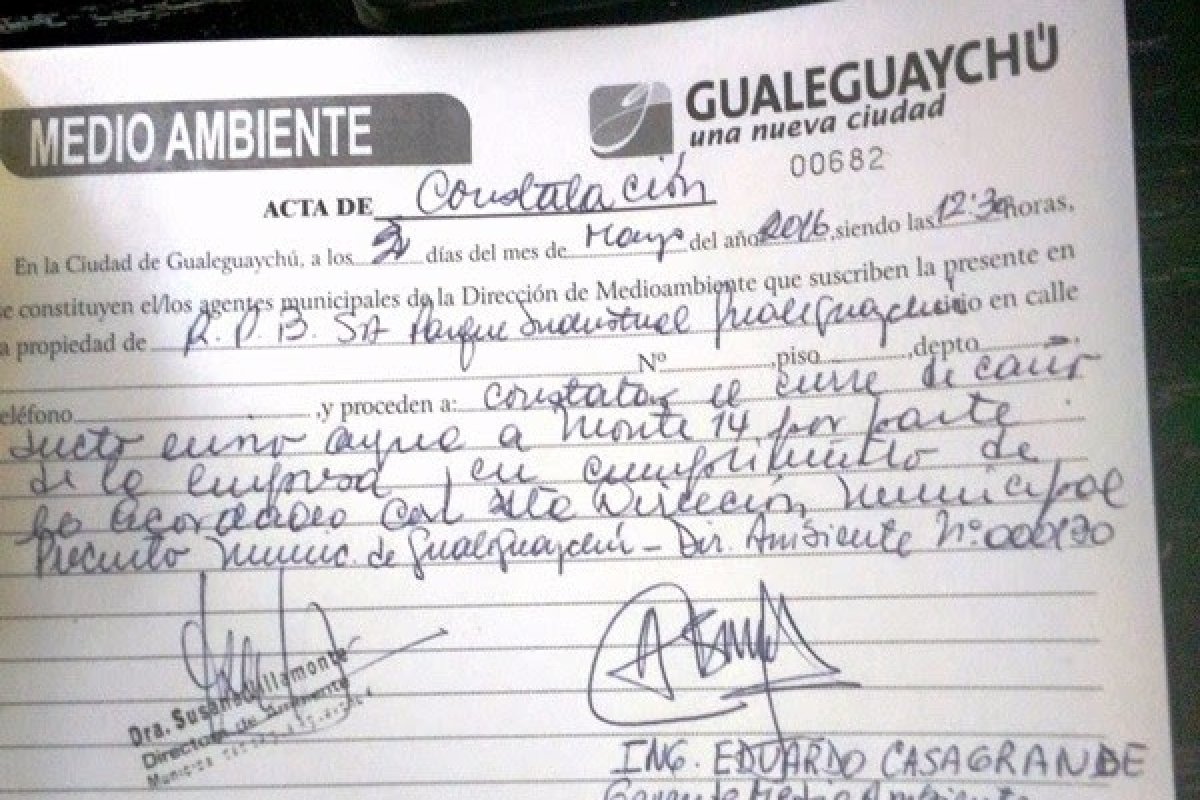 MEDIO AMBIENTE
GUALEGUAYCHÚ
una nueva ciudad
00682
ACTA DE Constatación
En la Ciudad de Gualeguaychú, a los días del mes de Mayo del año 2016, siendo las 12:30 horas,
se constituyen el/los agentes municipales de la Dirección de Medioambiente que suscriben la presente en
la propiedad de R.P.B. SA Parque Industrial Gualeguaychú sitio en calle
Nº , piso , depto ,
teléfono , y proceden a: constatar el cierre de cano
ducto agua a Monte 14, por parte
de la empresa en cumplimiento de
lo acordado con esta Dirección Municipal
Precinto Munic. de Gualeguaychú - Dir. Ambiente Nº
Dra. Susana Villamonte
Directora de Ambiente
ING. EDUARDO CASAGRANDE
Gerente Medio Ambiente